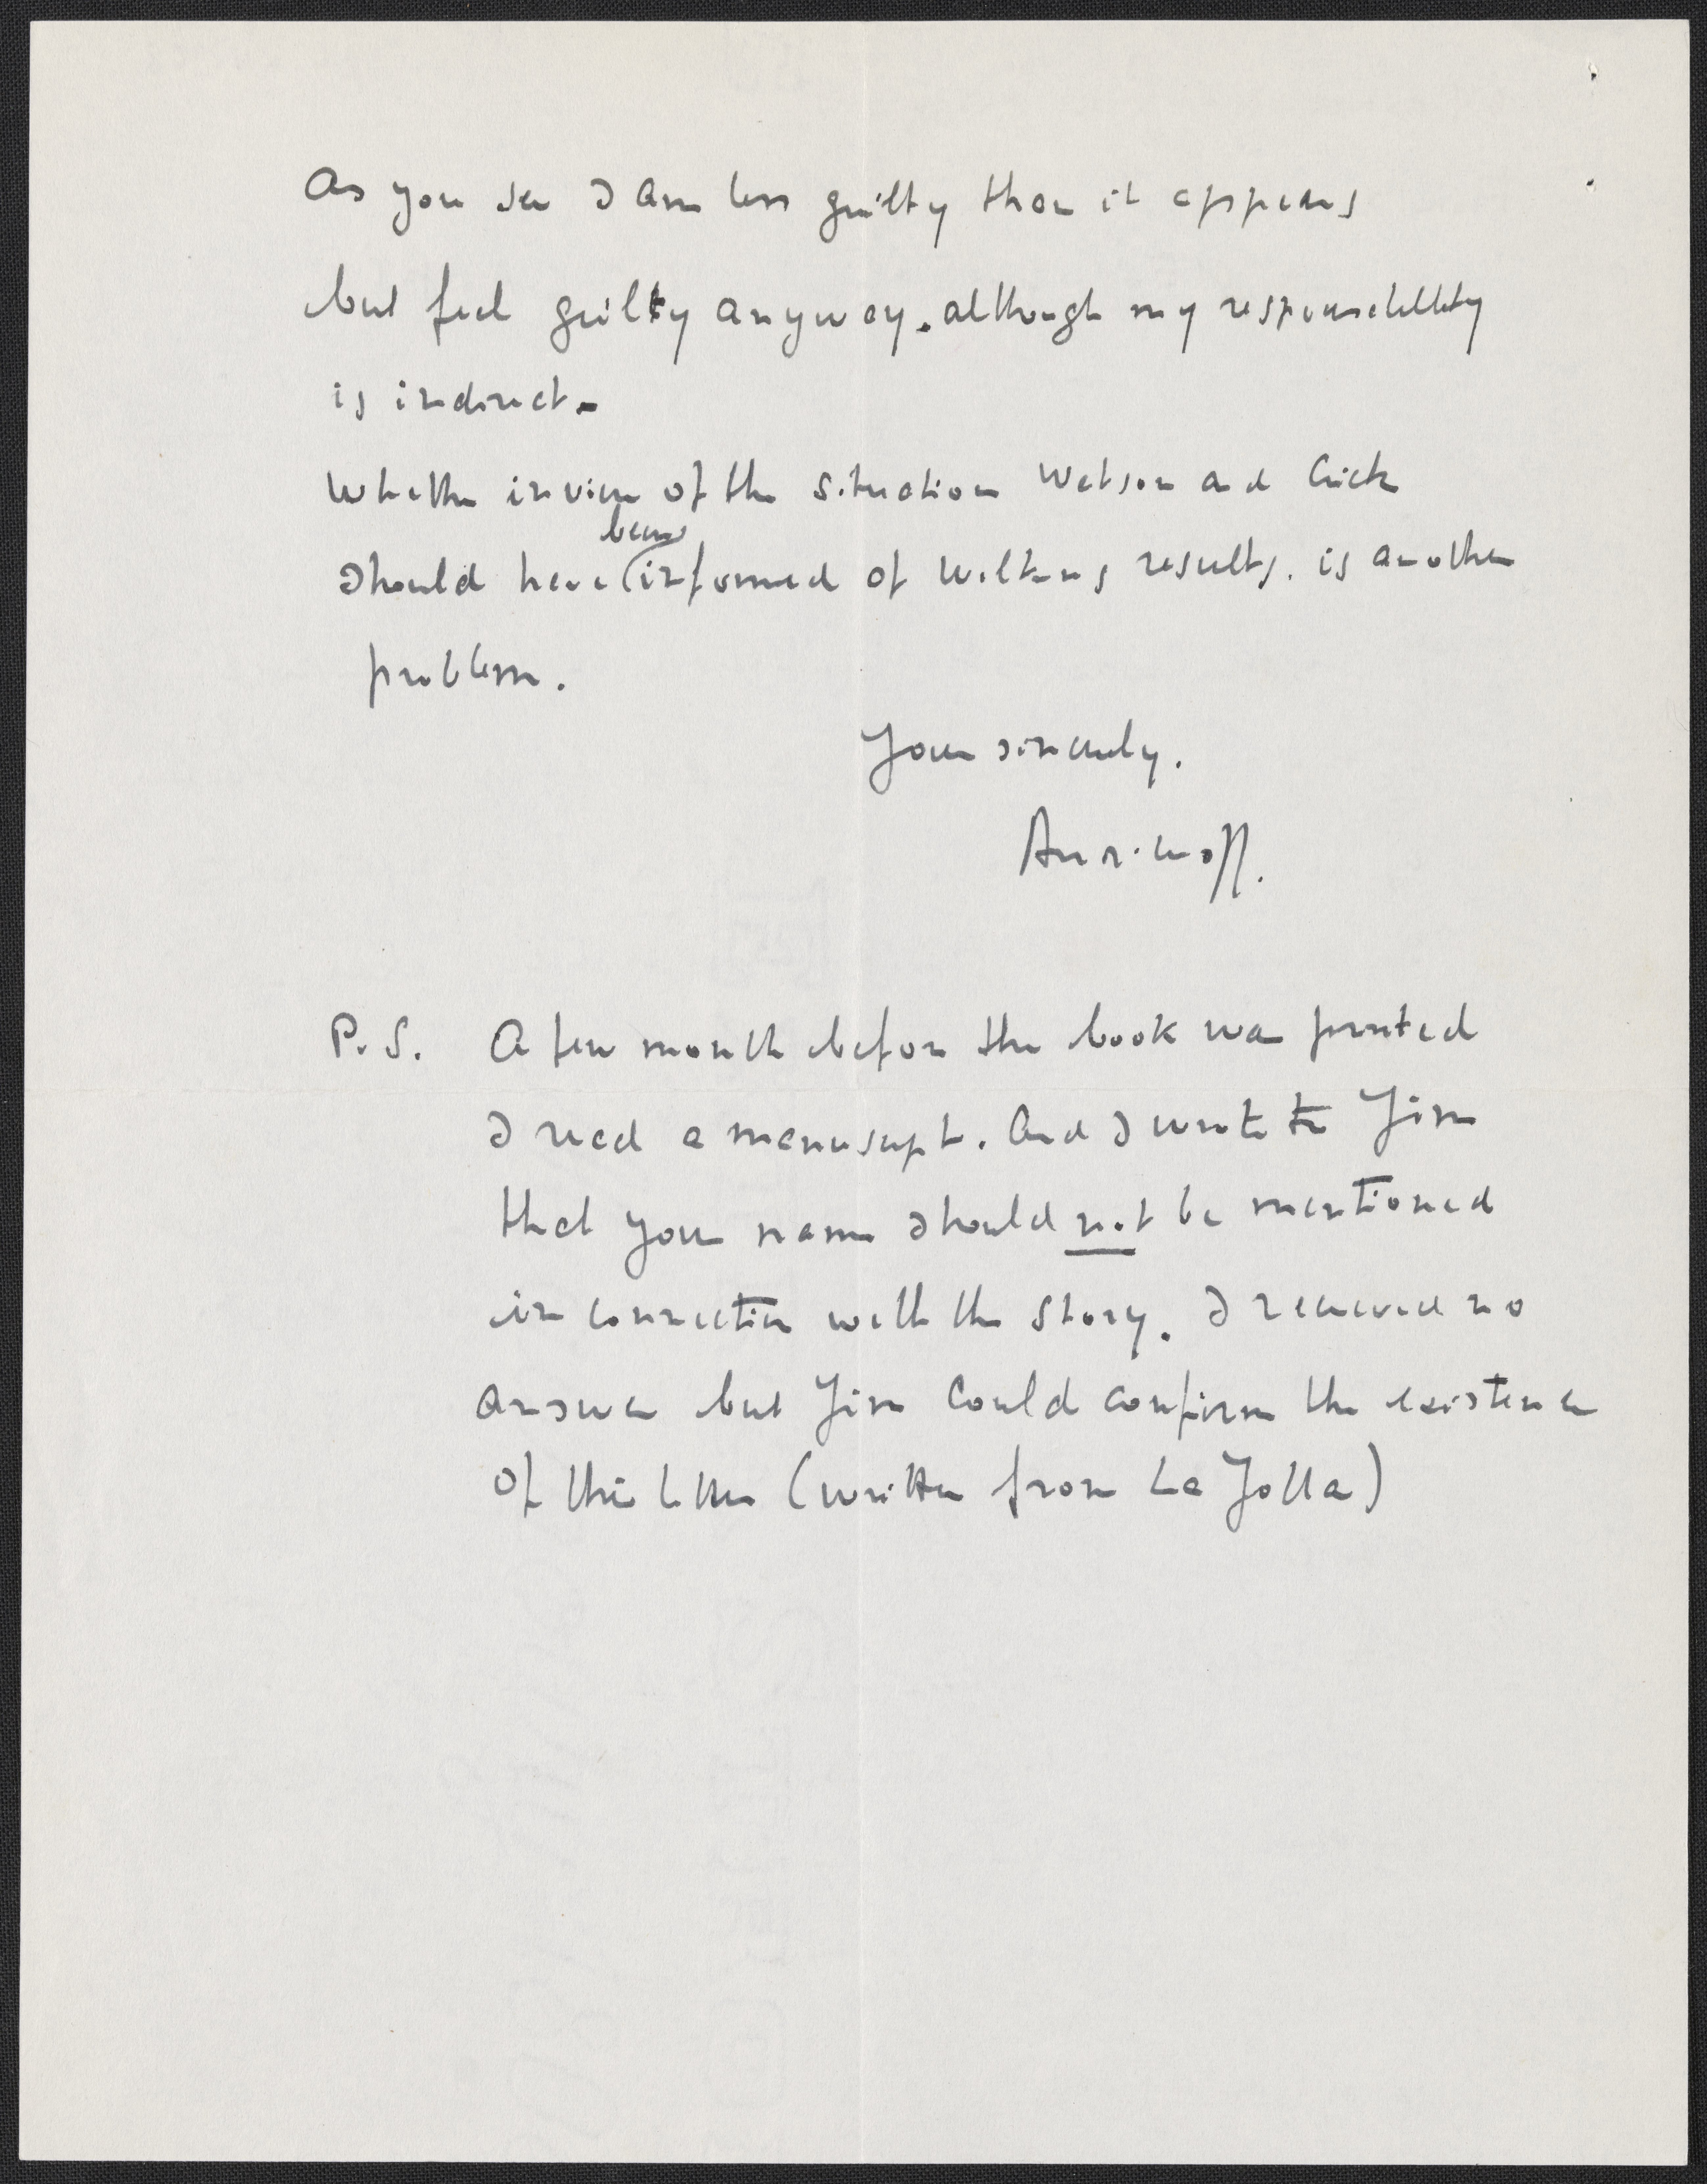 As you see I am less guilty than it appears
but feel guilty anyway. although my responsability
is indirect.
Whether in view of the situation Watson and Crick
been
should have informed of Wilkins results. is another
problem.
Your sincerely.
P.S. A few month before the book was printed
I read a manuscript. And I wrote to Jim
that your name should not be mentioned
in connection with the story. I received no
answer but Jim could confirm the existence
of this letter (written from La Jolla)